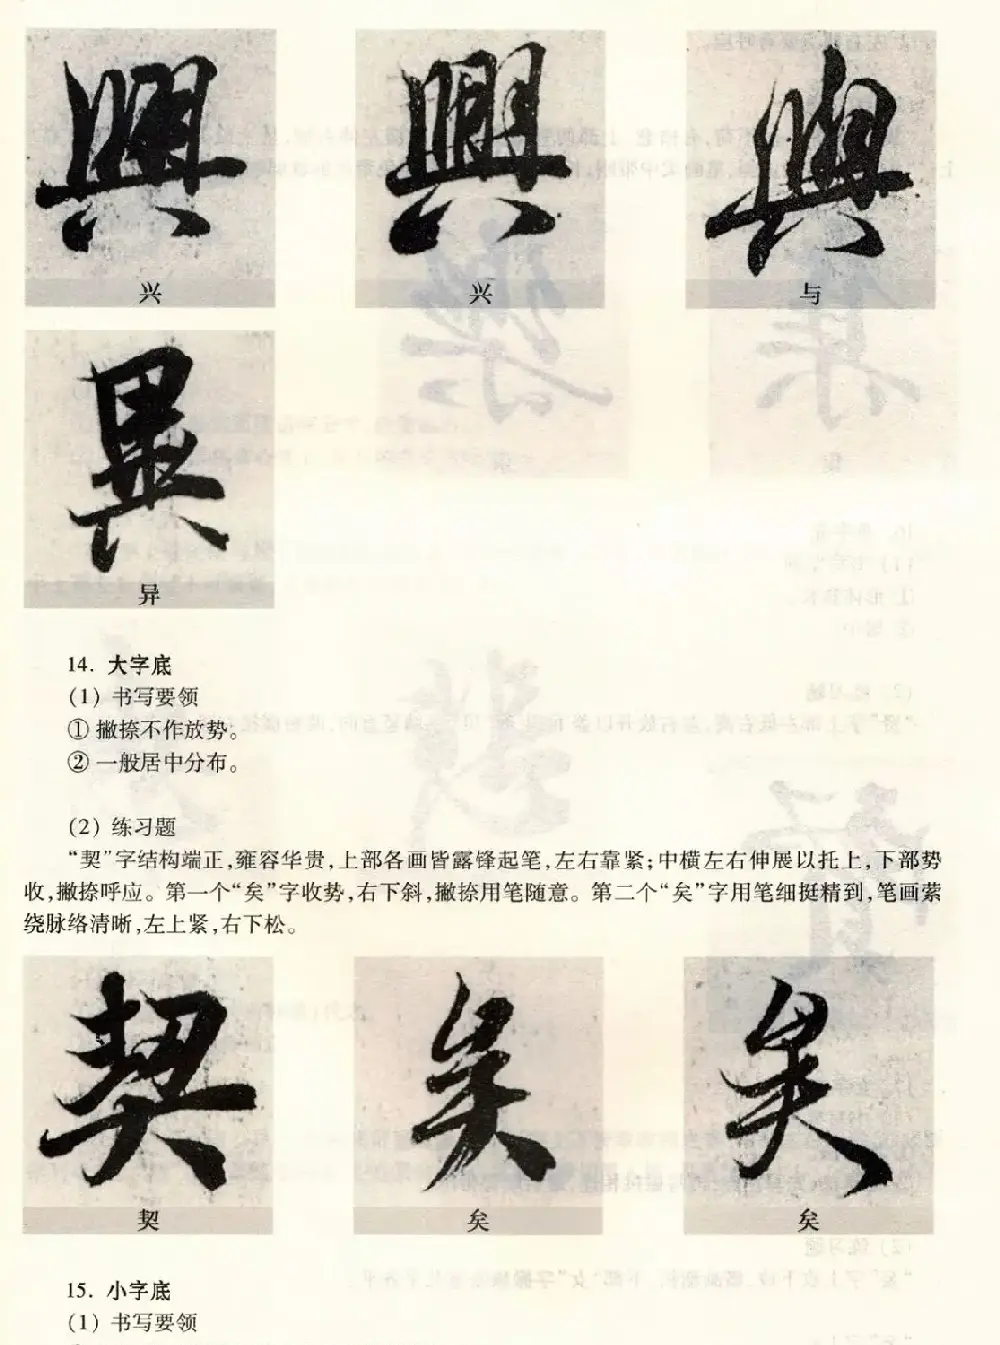 興 興 與
兴 兴 与
異
异
14. 大字底
(1) 书写要领
① 撇捺不作放势。
② 一般居中分布。
(2) 练习题
“契”字结构端正,雍容华贵,上部各画皆露锋起笔,左右靠紧;中横左右伸展以托上,下部势
收,撇捺呼应。第一个“矣”字收势,右下斜,撇捺用笔随意。第二个“矣”字用笔细挺精到,笔画萦
绕脉络清晰,左上紧,右下松。
契 矣 矣
契 矣 矣
15. 小字底
(1) 书写要领